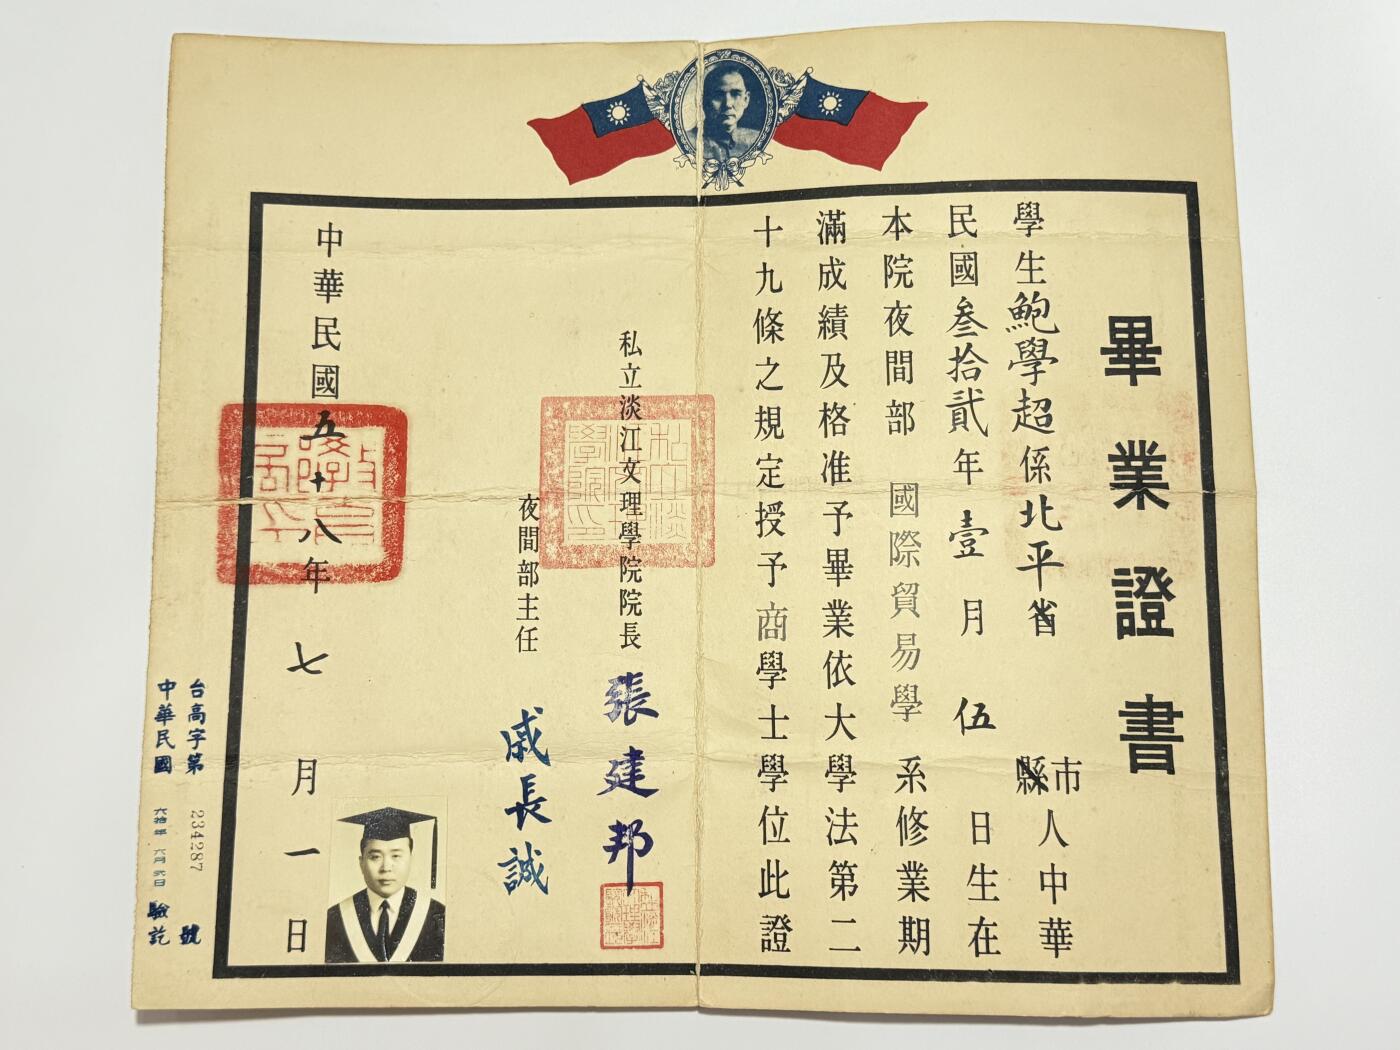 畢業證書
學生鮑學超係北平省 市縣人中華
民國叁拾貳年壹月伍日生在
本院夜間部 國際貿易學 系修業期
滿成績及格准予畢業依大學法第二
十九條之規定授予商學士學位此證
私立淡江文理學院院長 張建邦
私立淡江文理學院印
夜間部主任 戚長誠
中華民國五十八年七月一日
台高字第 234287 號
中華民國 六拾年 六月 日 驗訖